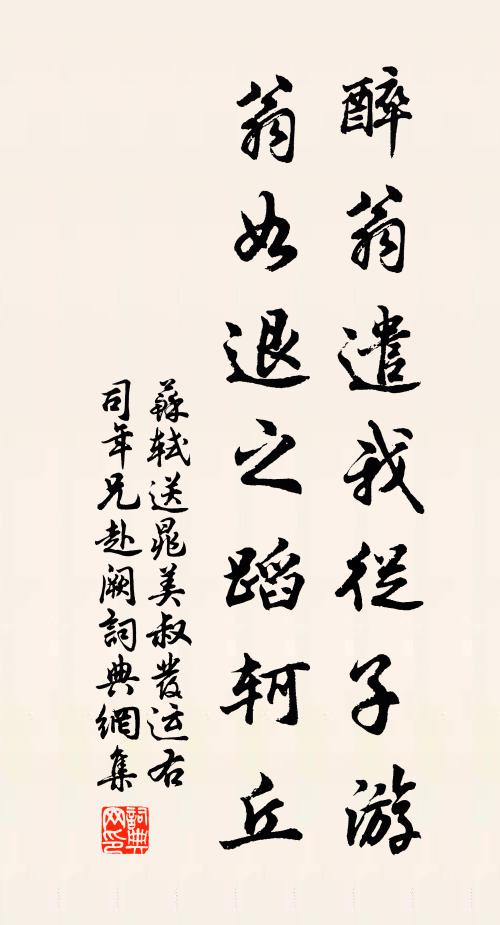 醉翁遣我從子游
翁如退之蹈軻丘
蘇軾送晁美叔發运右
司年兄赴阙詞典網集
詞典
网印